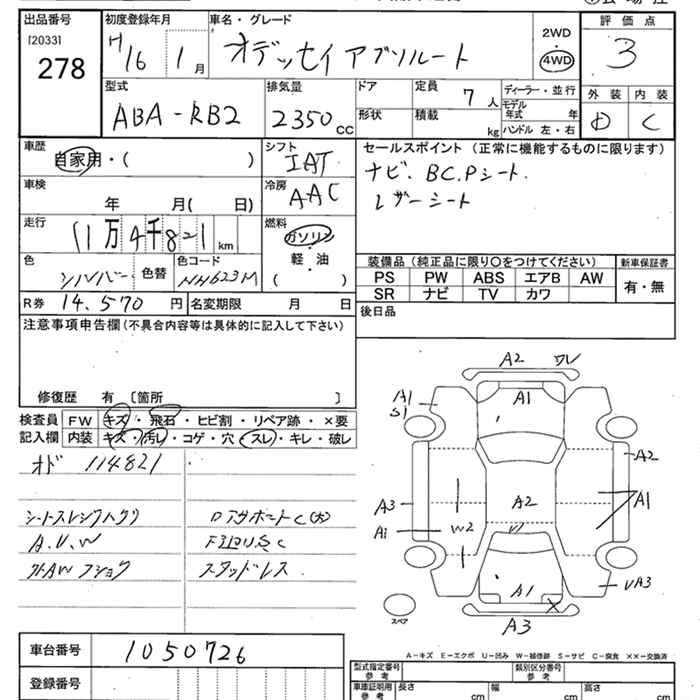 出品番号 初度登録年月 車名・グレード 評価点
[2033] 278
H16 1月 オデッセイ アブソルート 2WD 4WD 3
型式 排気量 ドア 定員 7人 ディーラー・並行 外装 内装
ABA-RB2 2350cc 形状 積載 kg モデル年式 年 D C
ハンドル 左・右
車歴 シフト セールスポイント (正常に機能するものに限ります)
自家用・( ) IAT ナビ. BC.Pシート.
車検 冷房 レザーシート
年 月( 日) AAC
走行 燃料
11万4千821km ガソリン
軽・油
( ) 装備品(純正品に限り○をつけてください) 新車保証書
色 シルバー 色替 色コード NH623M PS PW ABS エアB AW 有・無
SR ナビ TV カワ
R券 14.570円 名変期限 月 日 後日品
注意事項申告欄(不具合内容等は具体的に記入して下さい)
修復歴 有 〔箇所 〕
検査員 FW キズ・飛石・ヒビ割・リペア跡・×要
記入欄 内装 キズ・汚レ・コゲ・穴・スレ・キレ・破レ
オド 114821
A.U.W
スタッドレス
A2 ワレ
A1
A1
S1
A2
A3 A2 A1
A1 W2
A1 UA3
A3
スペア
A-キズ E-エクボ U-凹み W-補修跡 S-サビ C-腐食 ××-交換済
車台番号 1050726
登録番号
型式指定番号 参考 類別区分番号 参考
車庫証明用 参考 長さ cm 幅 cm 高さ cm